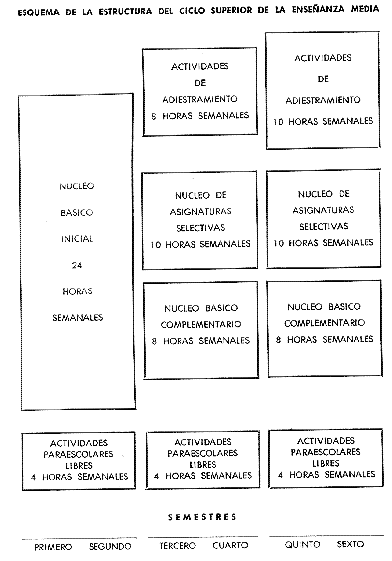 ESQUEMA DE LA ESTRUCTURA DEL CICLO SUPERIOR DE LA ENSEÑANZA MEDIA
ACTIVIDADES
DE
ADIESTRAMIENTO
8 HORAS SEMANALES
ACTIVIDADES
DE
ADIESTRAMIENTO
10 HORAS SEMANALES
NUCLEO
BASICO
INICIAL
24
HORAS
SEMANALES
NUCLEO DE
ASIGNATURAS
SELECTIVAS
10 HORAS SEMANALES
NUCLEO DE
ASIGNATURAS
SELECTIVAS
10 HORAS SEMANALES
NUCLEO BASICO
COMPLEMENTARIO
8 HORAS SEMANALES
NUCLEO BASICO
COMPLEMENTARIO
8 HORAS SEMANALES
ACTIVIDADES
PARAESCOLARES
LIBRES
4 HORAS SEMANALES
ACTIVIDADES
PARAESCOLARES
LIBRES
4 HORAS SEMANALES
ACTIVIDADES
PARAESCOLARES
LIBRES
4 HORAS SEMANALES
SEMESTRES
PRIMERO SEGUNDO TERCERO CUARTO QUINTO SEXTO